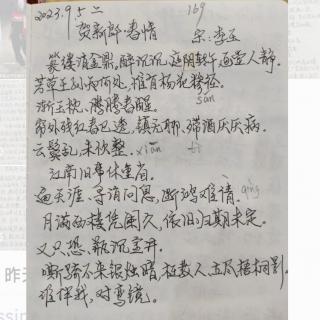 2023.9.5 二
169
贺新郎 春情 宋.李玉
篆缕消金鼎,醉沉沉,庭阴转午画堂人静.
芳草王孙知何处,惟有杨花糁径.
sǎn
渐玉枕、腾腾春醒.
帘外残红春已透,镇无聊、殢酒厌厌病.
云鬓乱,未忺整. xiān tì
江南旧事休重省.
遍天涯、寻消问息,断鸿难倩. qìng
月满西楼凭阑久,依旧归期未定.
又只恐、瓶沉金井.
嘶骑不来银烛暗,枉教人、立尽梧桐影.
谁伴我,对鸾镜.
昨天